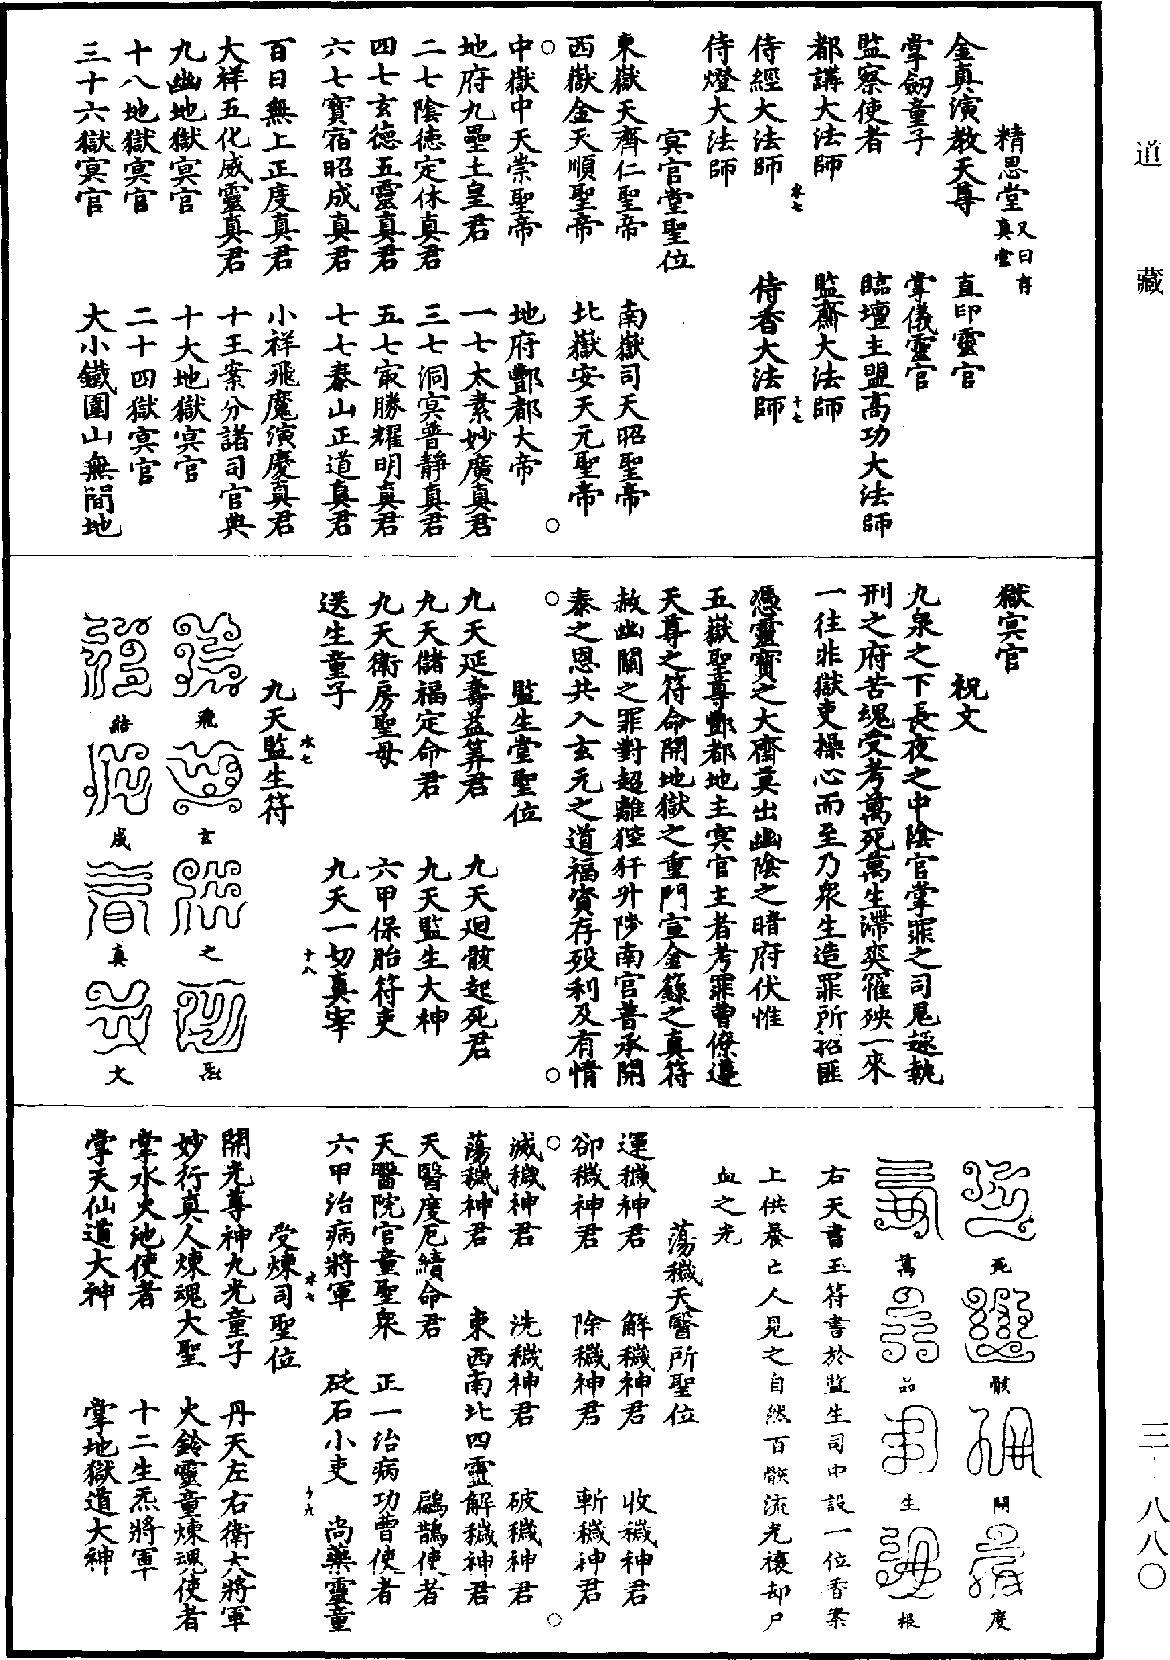 道藏
三·八八〇
精思堂又曰存真堂
金真演教天尊　直印靈官
掌劒童子　掌儀靈官
監察使者　臨壇主盟高功大法師
都講大法師　監齋大法師
侍經大法師　侍香大法師
侍燈大法師
冥官堂聖位
東嶽天齊仁聖帝　南嶽司天昭聖帝
西嶽金天順聖帝　北嶽安天元聖帝
中嶽中天崇聖帝　地府酆都大帝
地府九壘土皇君　一七太素妙廣真君
二七陰德定休真君　三七洞冥普靜真君
四七玄德五靈真君　五七㝡勝耀明真君
六七寶宿昭成真君　七七泰山正道真君
百日無上正度真君　小祥飛魔演慶真君
大祥五化威靈真君　十王案分諸司官典
九幽地獄冥官　十大地獄冥官
十八地獄冥官　二十四獄冥官
三十六獄冥官　大小鐵圍山無間地
獄冥官
祝文
九泉之下長夜之中陰官掌罪之司鬼趣執
刑之府苦魂受考萬死萬生滯爽罹殃一來
一往非獄吏操心而至乃衆生造罪所招匪
憑靈寶之大齋莫出幽陰之暗府伏惟
五嶽聖尊酆都地主冥官主者考罪曹僚遵
天尊之符命開地獄之重門宣金籙之真符
赦幽關之罪對超離狴犴升陟南宫普承開
泰之恩共入玄元之道福資存殁利及有情
監生堂聖位
九天延壽益算君　九天廻骸起死君
九天儲福定命君　九天監生大神
九天衛房聖母　六甲保胎符吏
送生童子　九天一切真宰
九天監生符
飛　玄　之　炁
結　成　真　文
死　骸　開　度
萬　品　生　根
右天書玉符書於監生司中設一位香案
上供養亡人見之自然百骸流光禳却尸
血之光
蕩穢天醫所聖位
運穢神君　解穢神君　收穢神君
卻穢神君　除穢神君　斬穢神君
滅穢神君　洗穢神君　破穢神君
蕩穢神君　東西南北四靈解穢神君
天醫度厄續命君　扁鵲使者
天醫院官童聖衆　正一治病功曹使者
六甲治病將軍　砭石小吏　尚藥靈童
受煉司聖位
開光尊神九光童子　丹天左右衛大將軍
妙行真人煉魂大聖　火鈴靈童煉魂使者
掌水火池使者　十二生炁將軍
掌天仙道大神　掌地獄道大神